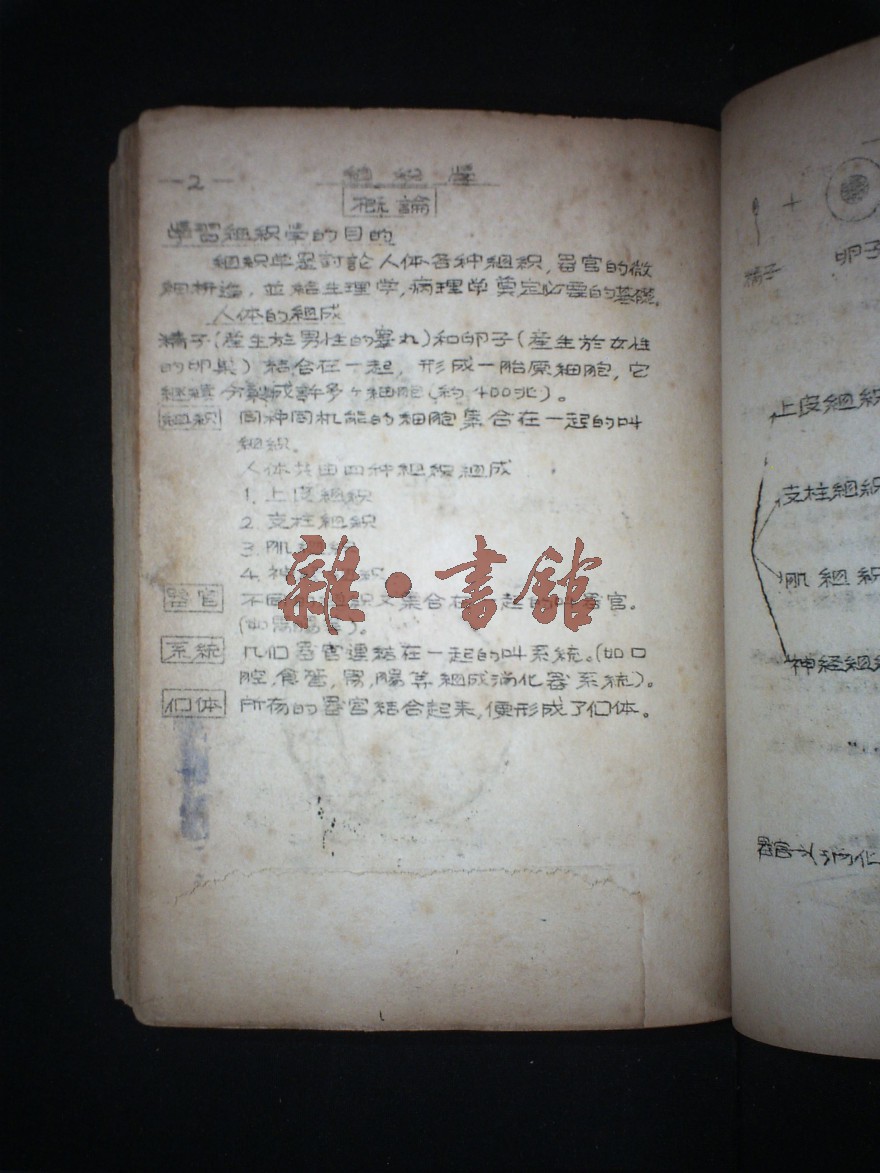 —2—
組織学
概論
學習組織学的目的
組織学是討論人体各种組織,器官的微
細構造,並給生理学,病理学奠定必要的基礎。
人体的組成
精子(產生於男性的睪丸)和卵子(產生於女性
的卵巢)結合在一起,形成一胎原細胞,它
継續分裂成許多个細胞(約400兆)。
組織 同种同机能的細胞集合在一起的叫
組織。
人体共由四种組織組成
1.上皮組織
2.支柱組織
3.肌
4.神 織
器官 不同 織又集合在 起的叫器官。
(如胃腸等)。
系統 几们器官連結在一起的叫系統。(如口
腔,食管,胃,腸等組成消化器系統)。
们体 所有的器官結合起来,便形成了们体。
雜·書館
+
精子 卵子
上皮組織
支柱組織
肌組織
神経組織
器官 消化